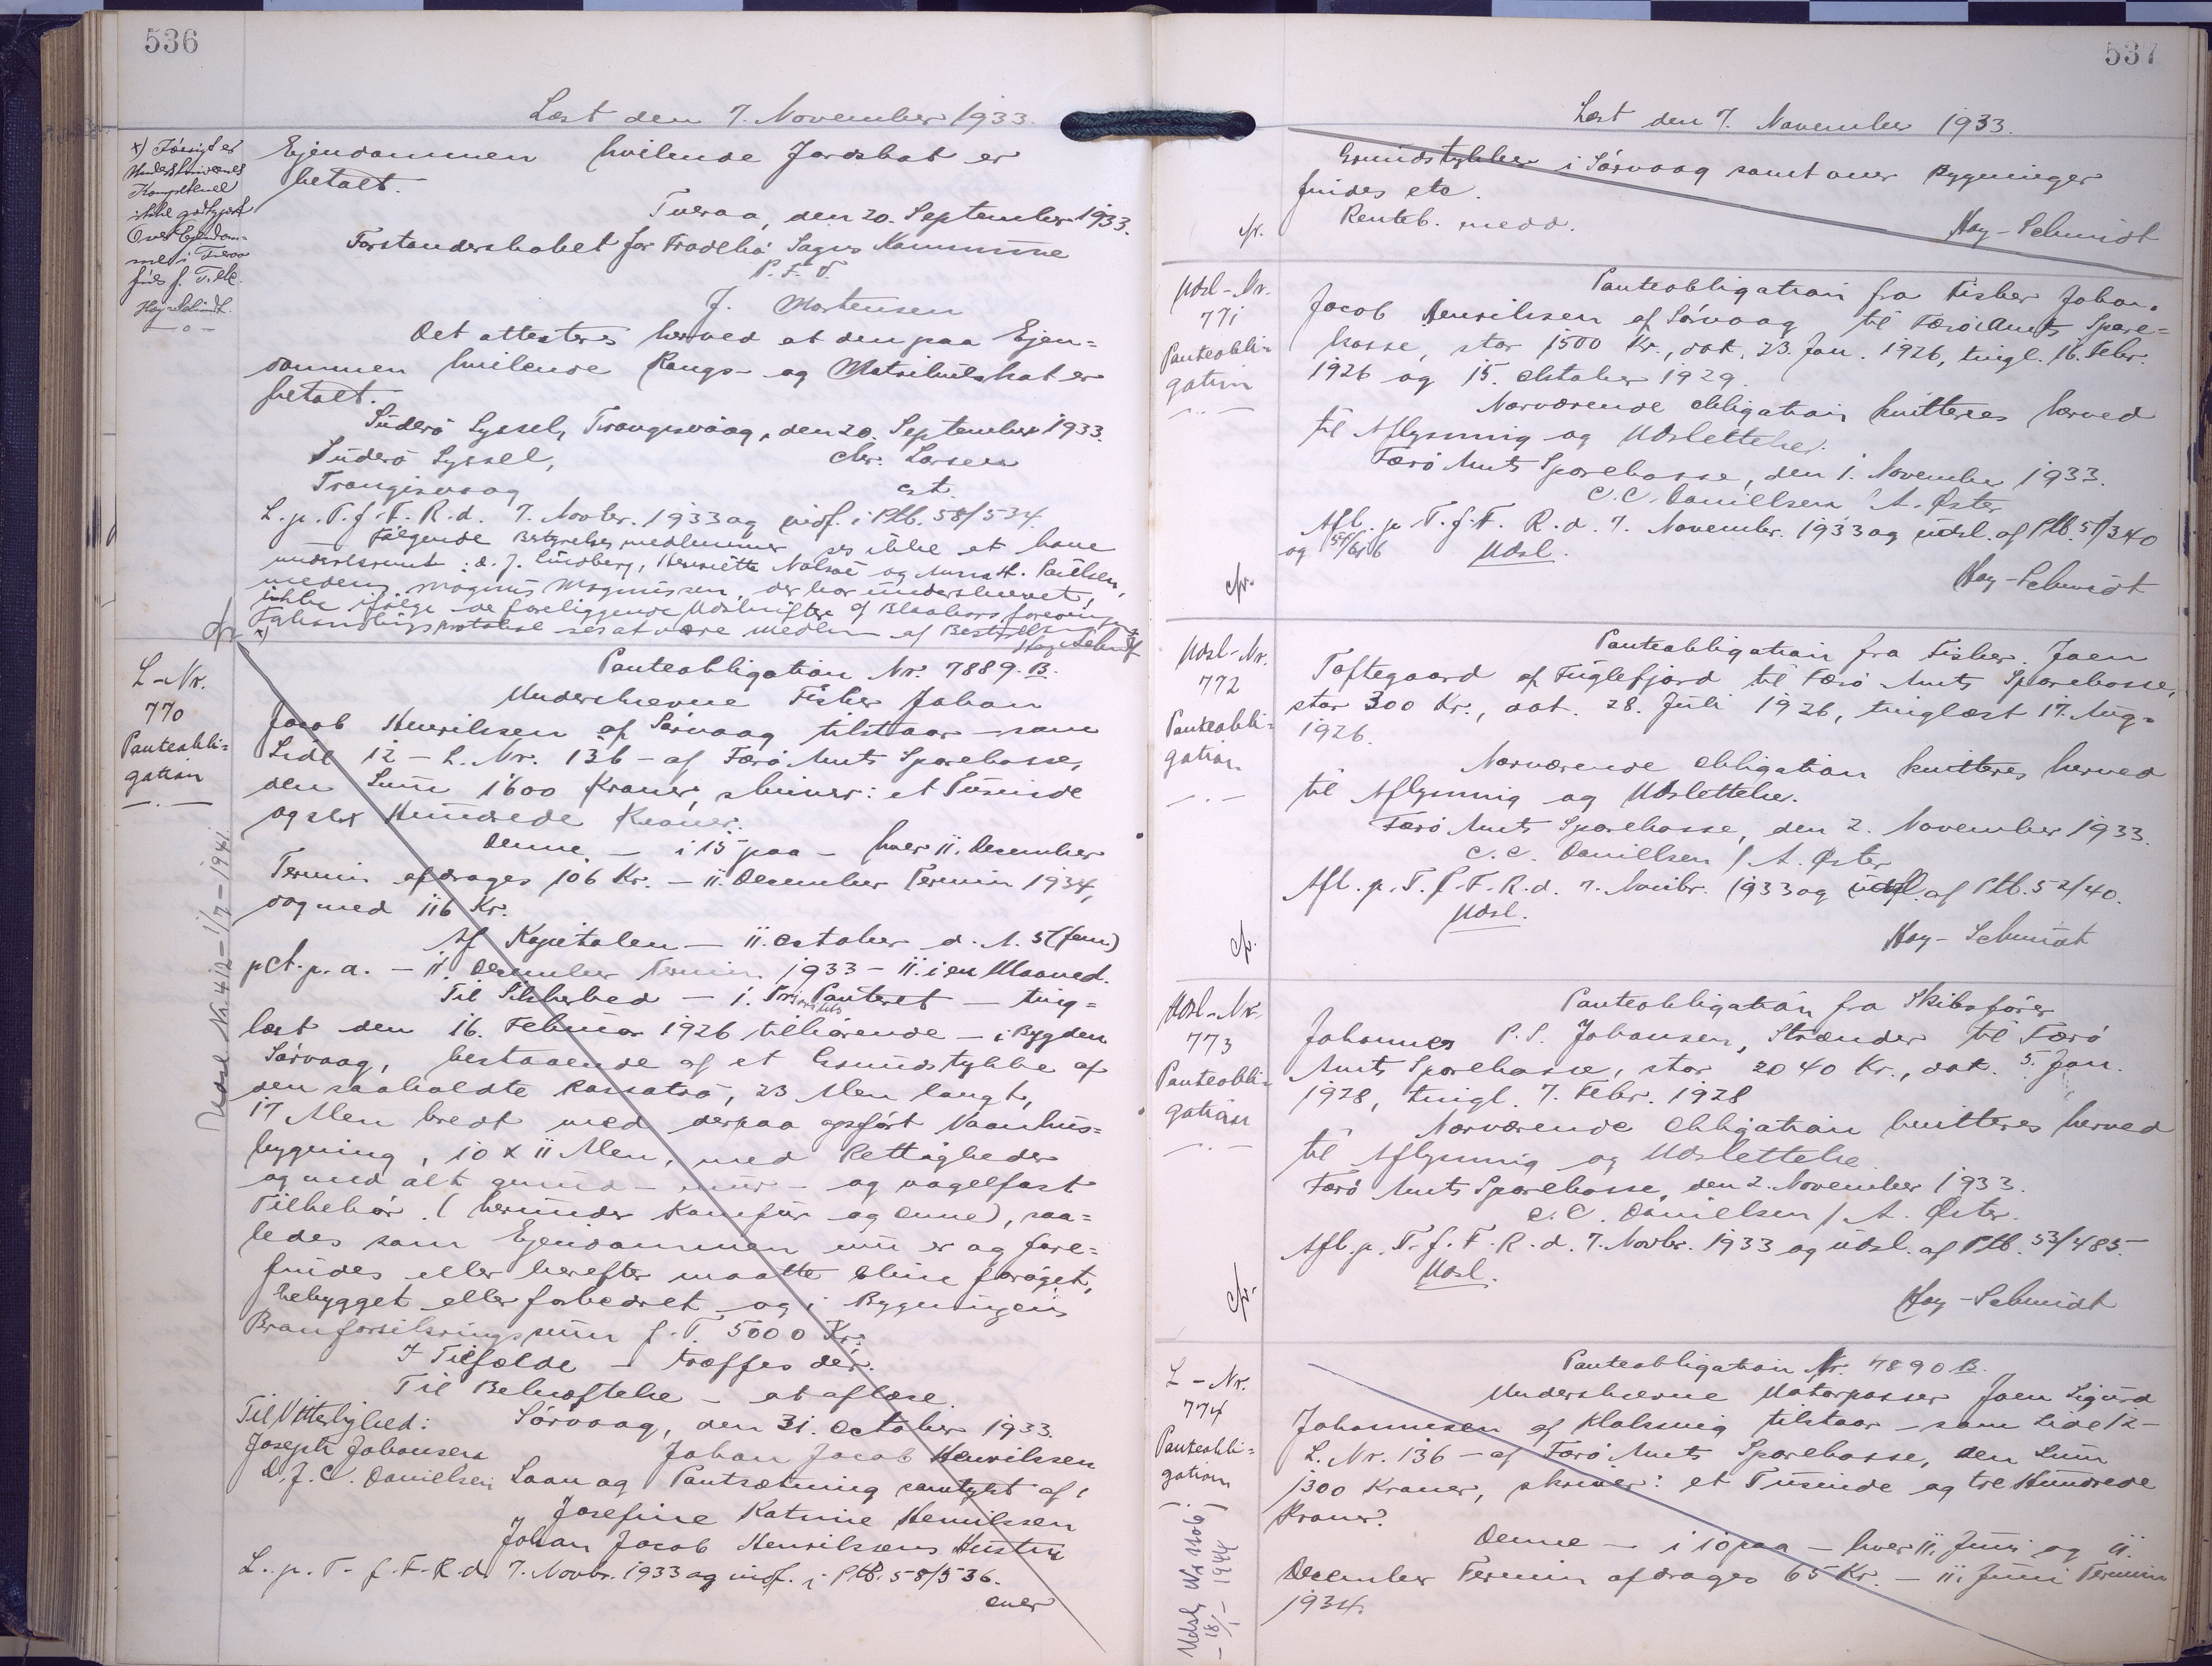 536
Læst den 7. November 1933.
x) Forøvrigt er
Underskrivernes
Kompetence
ikke godtgjort
Over Ejendom-
me i Tveraa
findes f. T. etc.
Hay-Schmidt.
— o —
Ejendommen hvilende Jordskat er
betalt.
Tveraa, den 20. September 1933.
Forstanderskabet for Frodebø Sogns Kommune
P. F. V.
J. Mortensen
Det attesteres herved at den paa Ejen=
dommen hvilende Rangs- og Matrikulskat er
betalt.
Suderø Syssel, Trangisvaag, den 20. September 1933.
Suderø Syssel, Chr. Larsen
Trangisvaag cst.
L. p. T. f. F. R. d. 7. Novbr. 1933 og indf. i Ptb. 58/534
Følgende Bestyrelsesmedlemmer ses ikke at have
underskrevet: d. J. Lindberg, Henriette Nolsøe og Anna H. Poulsen,
medens Magnus Magnussen, der har underskrevet,
ikke ifølge de foreliggende Udskrifter af Blaakorsforeningens
Forhandlingsprotokol ses at være Medlem af Bestyrelsen x)
Hay-Schmidt
L-Nr.
770
Panteobli=
gation
— . —
Udsl Nr. 412 = 1/7 - 1941
Panteobligation Nr. 7889. B.
Underskrevne Fisker Johan
Jacob Henrikssen af Sørvaag tilstaar - som
Lide 12 - L. Nr. 136 - af Færø Amts Sparekasse,
den Sum 1600 Kroner, skriver: et Tusinde
og sex Hundrede Kroner.
Denne - i 15 paa - hver 11. December
Termin afdrages 106 Kr. - 11. December Termin 1934,
dog med 116 Kr.
Af Kapitalen - 11. October d. A. 5 (fem)
pCt. p. a. - 11. December Termin 1933 - 11. i en Maaned.
Til Sikkerhed - 1. Prioritets Panteret - ting=
læst den 16. Februar 1926 tilhørende - i Bygden
Sørvaag, bestaaende af et Grundstykke af
den saakaldte Rossatrø, 23 Alen langt,
17 Alen bredt med derpaa opført Vaanhus=
bygning, 10 x 11 Alen, med Rettigheder
og med alt grund- mur- og nagelfast
Tilbehør (herunder Komfur og Ovne), saa=
ledes som Ejendommen nu er og fore=
findes eller herefter maatte blive forøget,
bebygget eller forbedret og i Bygningens
Brandforsikringssum f. T. 5000 Kr.
I Tilfælde - træffes der.
Til Bekræftelse - at aflæse.
Til Vitterlighed: Sørvaag, den 31. October 1933.
Joseph Johansen Johan Jacob Henrikssen
D. J. C. Danielsen Laan og Pantsætning samtykt af:
Josefine Katrine Henrikssen
Johan Jacob Henrikssens Hustru
L. p. T. f. F. R. d. 7. Novbr. 1933 og indf. i Ptb. 58/536.
over
537
Læst den 7. November 1933.
Grundstykker i Sørvaag samt over Bygninger
findes etc.
cfr. Renteb. medd.
Hay-Schmidt
Udsl-Nr.
771
Panteobli=
gation
— . . —
Panteobligation fra Fisker Johan
Jacob Henrikssen af Sørvaag til Færø Amts Spare=
kasse, stor 1500 Kr., dat. 23. Jan. 1926, tingl. 16. Febr.
1926 og 15. Oktober 1929.
Nærværende Obligation kvitteres herved
til Aflysning og Udslettelse.
Færø Amts Sparekasse, den 1. November 1933.
C. C. Danielsen / A. Øster
Afl. p. T. f. F. R. d. 7. November 1933 og udsl. af Ptb. 51/340
og 55/616 Udsl.
cfr.
Hay-Schmidt
Udsl-Nr.
772
Panteobli=
gation
— . —
Panteobligation fra Fisker Joen
Toftegaard af Fuglefjord til Færø Amts Sparekasse,
stor 300 Kr., dat. 28. Juli 1926, tinglæst 17. Aug=
1926.
Nærværende Obligation kvitteres herved
til Aflysning og Udslettelse.
Færø Amts Sparekasse, den 2. November 1933.
C. C. Danielsen / A. Øster
Afl. p. T. f. F. R. d. 7. Novbr. 1933 og udsl. af Ptb. 52/40.
Udsl.
cfr.
Hay-Schmidt
Udsl-Nr.
773
Panteobli=
gation
— . —
Panteobligation fra Skibsfører
Johannes P. S. Johansen, Strænder til Færø
Amts Sparekasse, stor 2040 Kr., dat. 5. Jan.
1928, tingl. 7. Febr. 1928
Nærværende Obligation kvitteres herved
til Aflysning og Udslettelse
Færø Amts Sparekasse, den 2. November 1933.
C. C. Danielsen / A. Øster.
Afl. p. T. f. F. R. d. 7. Novbr. 1933 og udsl. af Ptb. 53/485
Udsl.
cfr.
Hay-Schmidt
L - Nr.
774
Panteobli=
gation
Panteobligation Nr. 7890 B.
Underskrevne Motorpasser Joen Sigurd
Johannesen af Klaksvig tilstaar - som Lide 12 -
L. Nr. 136 - af Færø Amts Sparekasse, den Sum
1300 Kroner, skriver: et Tusinde og tre Hundrede
Kroner.
Denne - i 10 paa - hver 11. Juni og 11.
December Termin afdrages 65 Kr. - 11. Juni Termin
1934.
- 18/1 - 1944